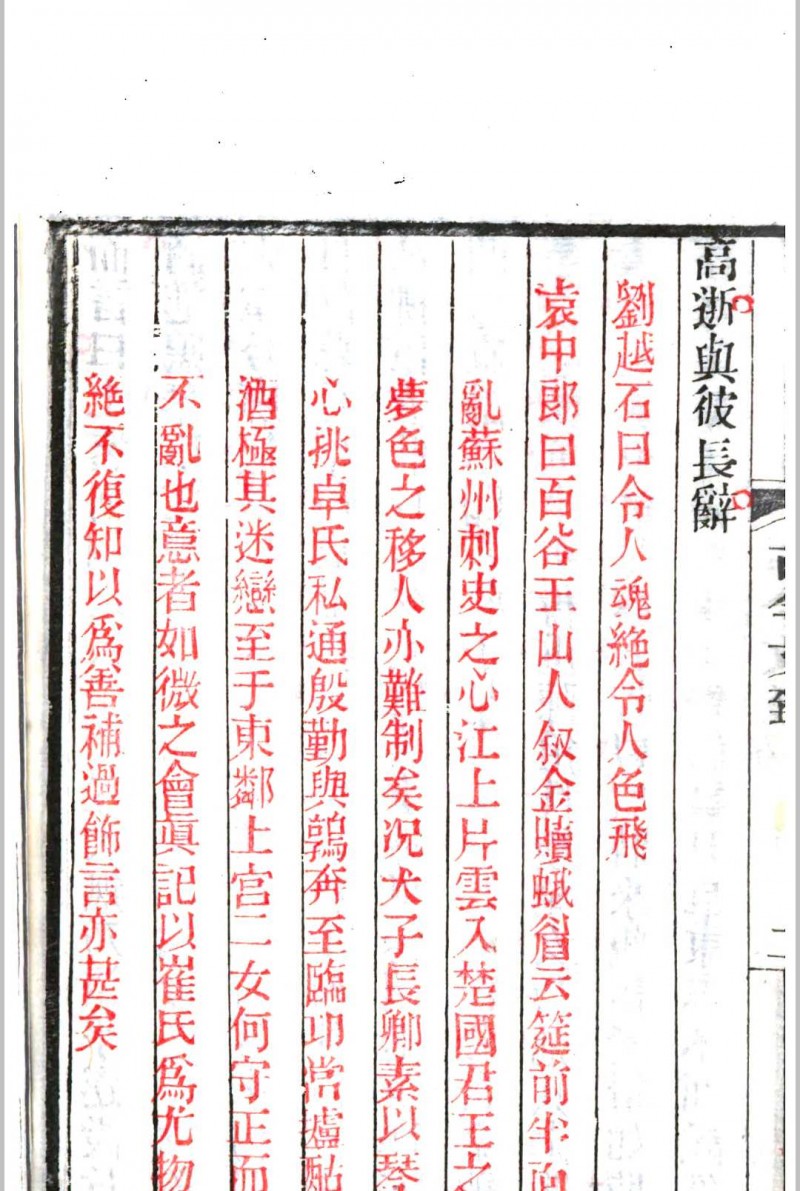 高逝與彼長辭
劉越石曰令人魂絶令人色飛
袁中郎曰百谷王山人叙金贖蛾眉云筵前半面
亂蘇州刺史之心江上片雲入楚國君王之
夢色之移人亦難制矣況犬子長卿素以琴
心挑卓氏私通殷勤與鶉奔至臨邛當壚
酒極其迷戀至于東鄰上宮二女何守正而
不亂也意者如微之會眞記以崔氏爲尤物
絶不復知以爲善補過飾言亦甚矣